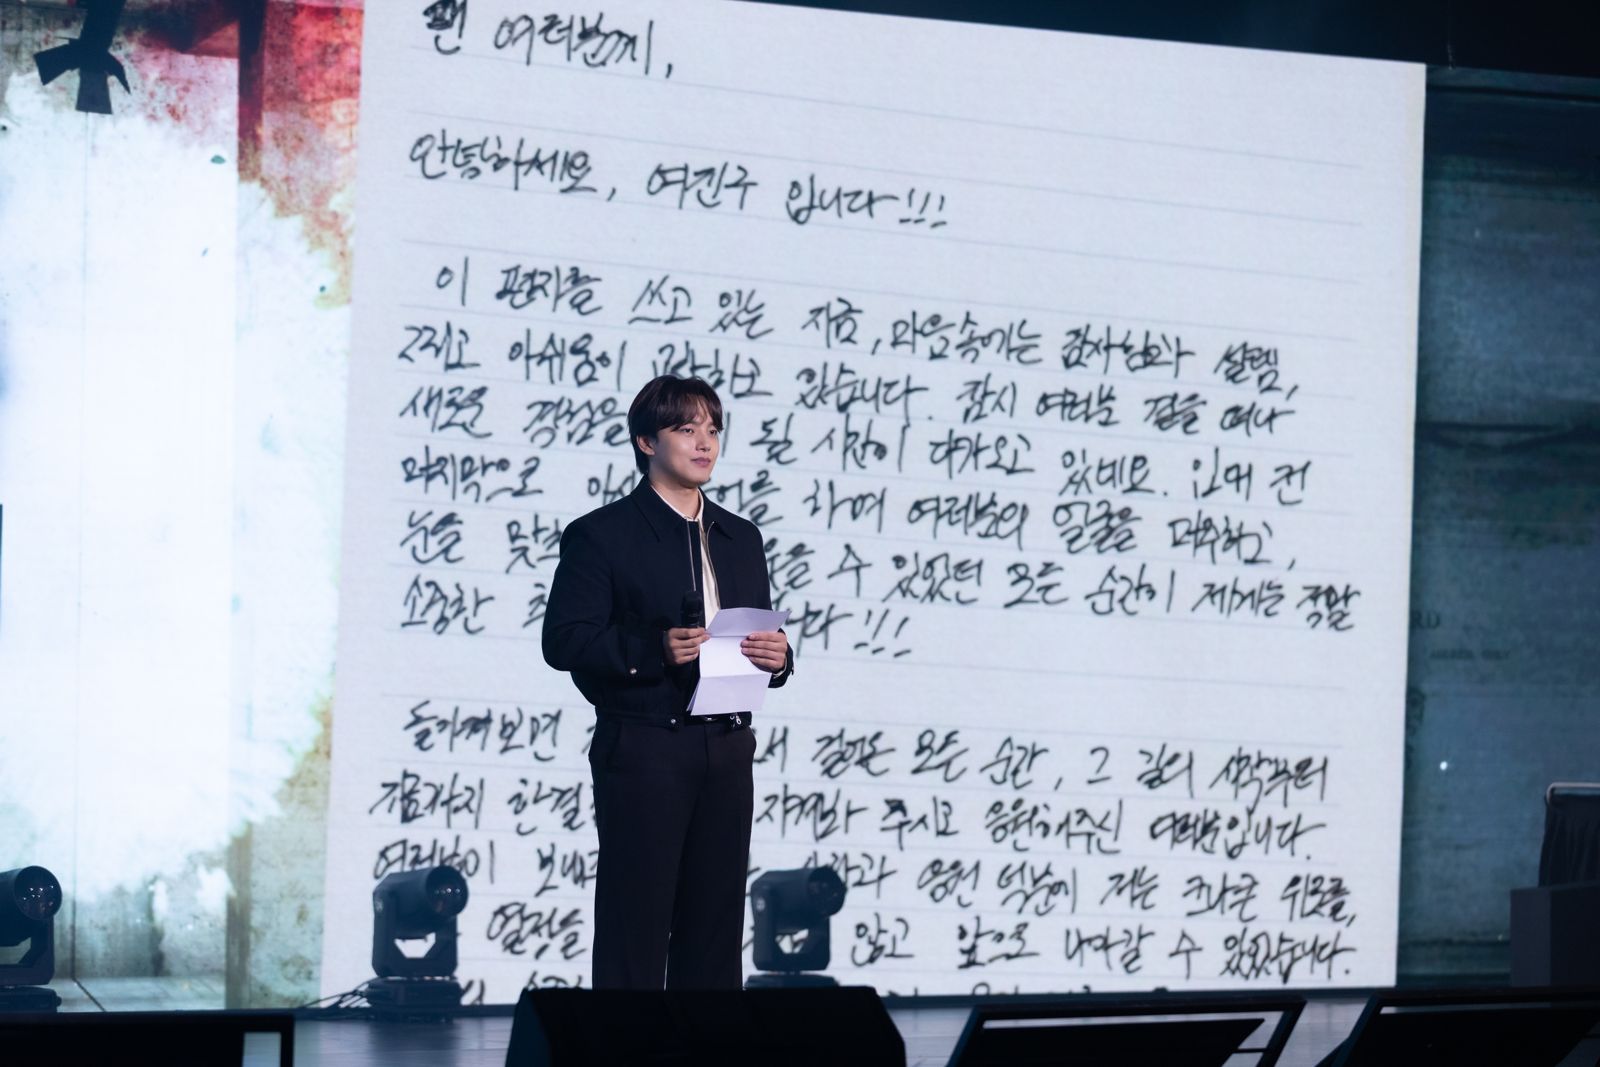 팬 여러분께,
안녕하세요, 여진구 입니다!!!
이 편지를 쓰고 있는 지금, 마음속에는 감사함과 설렘,
그리고 아쉬움이 교차하고 있습니다. 잠시 여러분 곁을 떠나
새로운 걸음을 될 시간이 다가오고 있네요. 인데 전
마지막으로 아시 어를 하며 여러분의 얼굴을 마주하고,
눈을 맞추 수 있었던 모든 순간이 제게는 정말
소중한 니다!!!
돌이켜보면 서 걸어온 모든 순간, 그 길의 시작부터
지금까지 한결 지켜봐 주시고 응원해주신 여러분입니다.
여러분이 보내주 사랑과 응원 덕분에 저는 크나큰 위로를,
열정을 않고 앞으로 나아갈 수 있었습니다.
RD